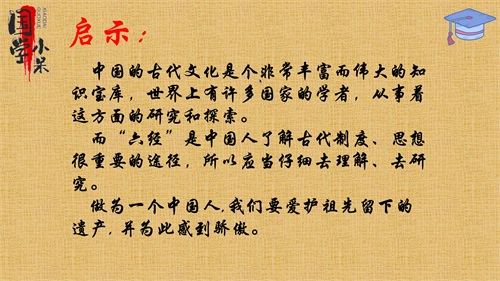 国学小米
XIAOMI
GUOXUE
启示：
中国的古代文化是个非常丰富而伟大的知
识宝库，世界上有许多国家的学者，从事着
这方面的研究和探索。
而“六经”是中国人了解古代制度、思想
很重要的途径，所以应当仔细去理解、去研
究。
做为一个中国人，我们要爱护祖先留下的
遗产，并为此感到骄傲。